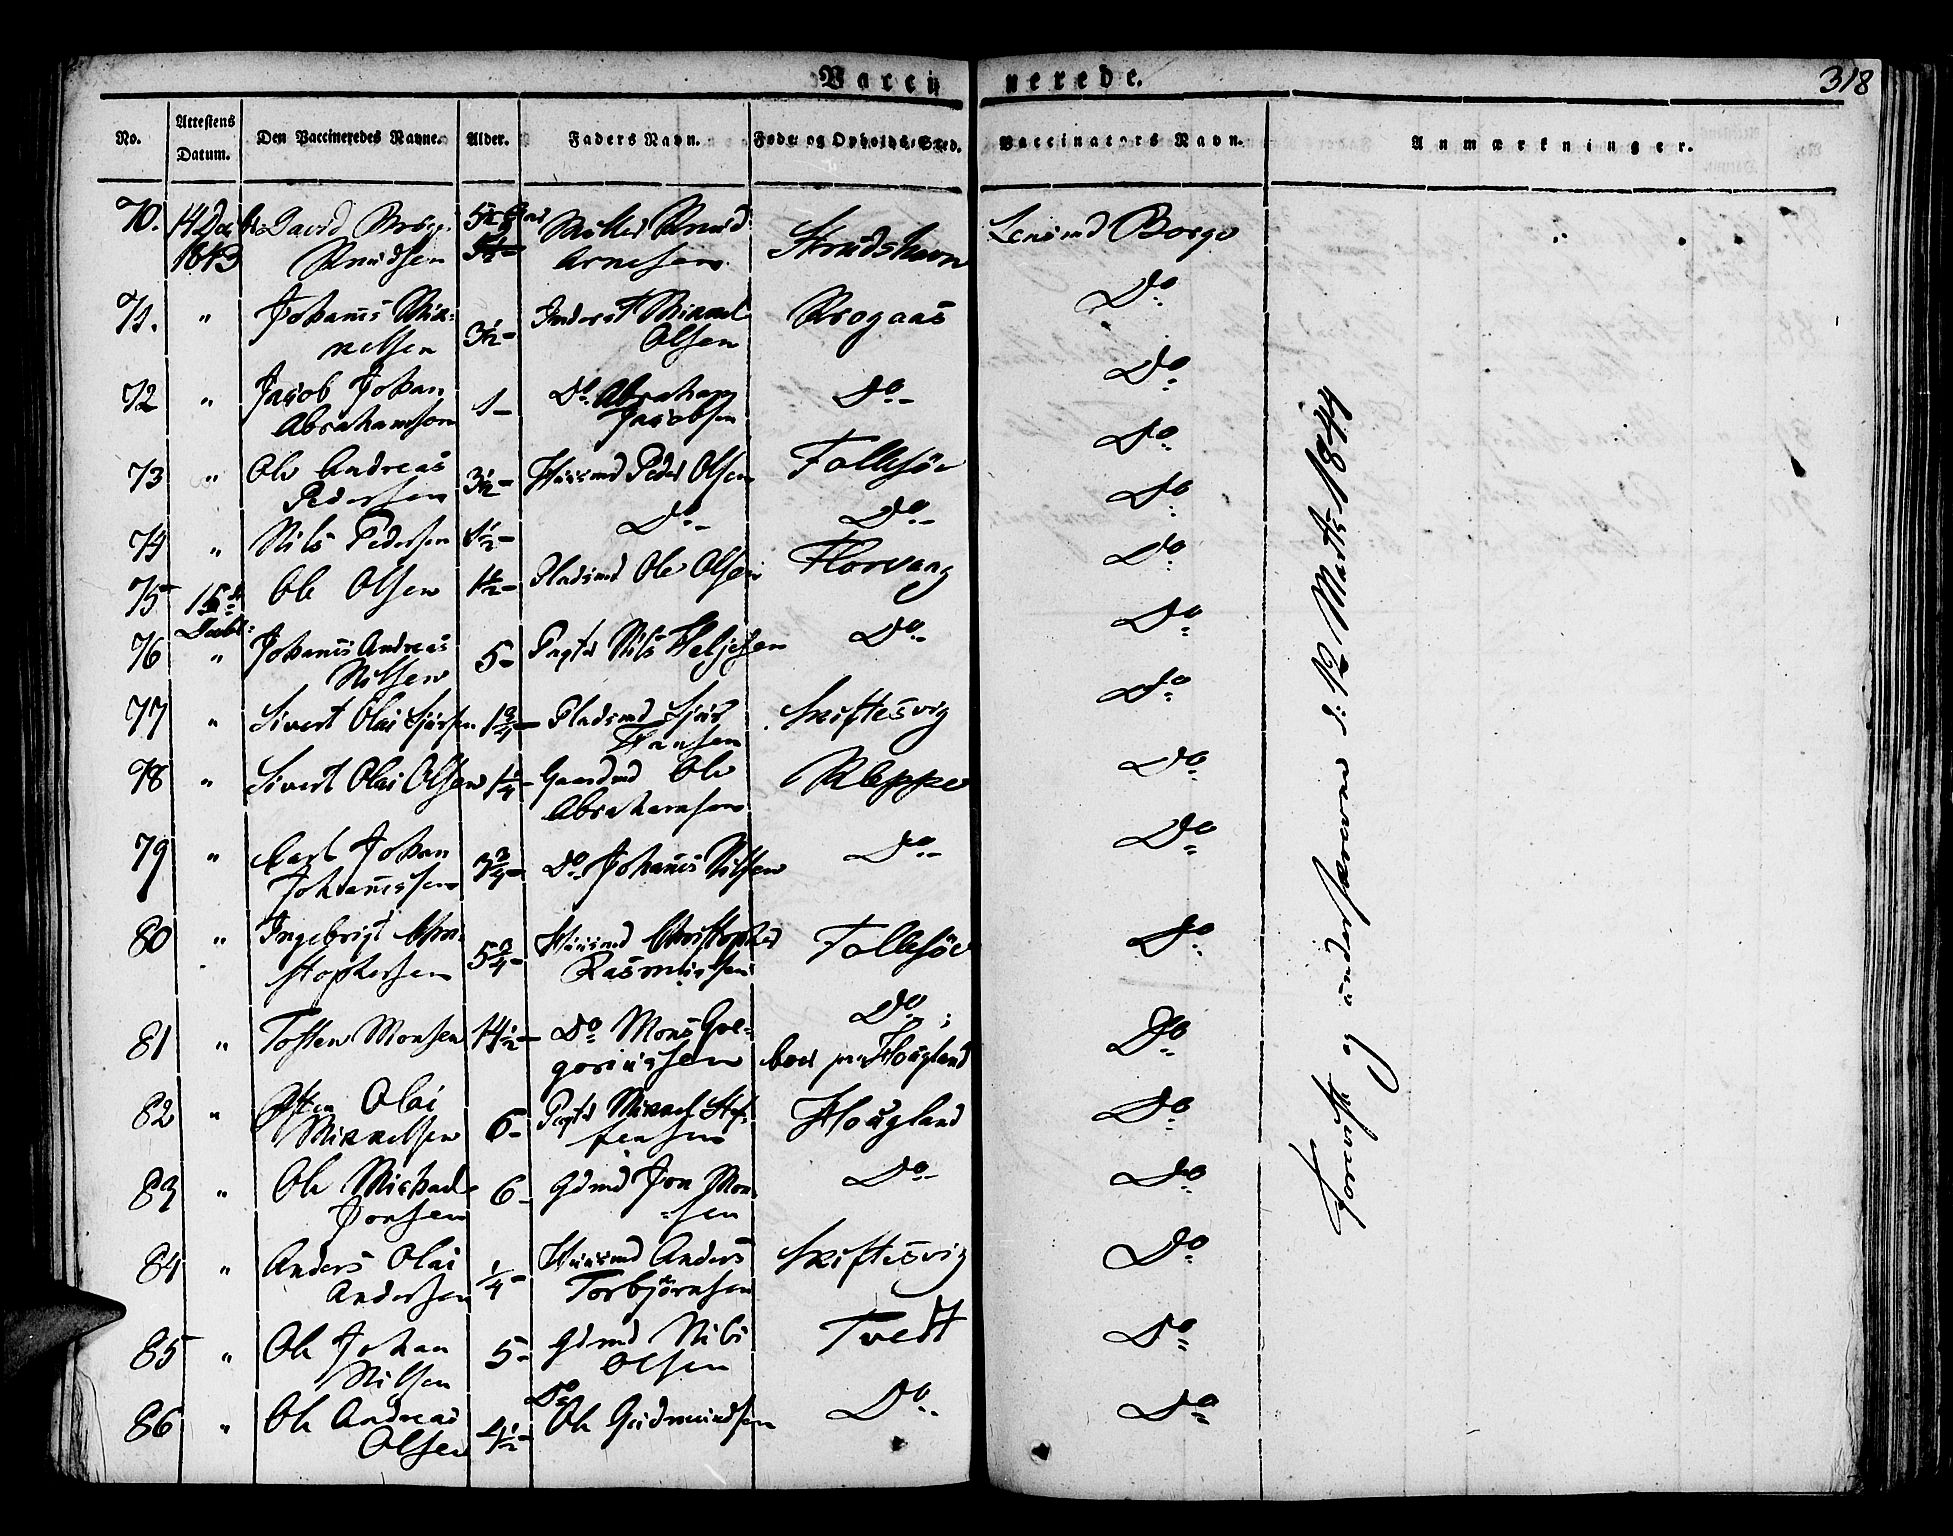 Vacci nerede.
318
No. Attestens Datum. Den Vaccineredes Navne. Alder. Faders Navn. Føde- og Opholds-Sted. Vaccinators Navn. Anmærkninger.
70. 14 Decbr 1843 David
Knudsen Knud
Arnesen Strudshavn Lensmd Borge
71. " Johanes Mik-
kelsen 3½ - Inderst Mikkel
Olsen Krogaas Do
72 " Jacob Johan
Abrahamson 1 - Do Abraham
Jacobsen Do - Do
73 " Ole Andreas
Pedersen 3½ - Huusmd Peder Olsen Follesöe Do
74 " Nils Pedersen 1½ - Do - Do - Do
75 15de
Decbr: Ole Olsen 1½ - Pladsmd Ole Olsen Florvaag Do
76 " Johanes Andreas
Nilsen 5 - Nils Heljesen Do - Do
77 " Sivert Olai Sjursen 1¾ - Pladsmd Sjur
Hansen Skiftesvig Do
78 " Sivert Olai Olsen 1¼ - Gaardmd Ole
Abrahamsen Kleppe Do
79 " Carl Johan
Johannessen 3¾ - Do Johanes Nilsen Do - Do
80 " Ingebrigt Chri-
stophersen 5¾ - Huusmd Christopher
Rasmussen Follesöe Do
81 " Tosten Monsen 14½ - Do Mons Gre-
goriussen Do ;
boer paa Hougland Do
82 " Olai
Mikkelsen 6 - Mikkel Stef-
fensen Hougland Do
83 " Ole Michael
Jonsen 6 - Gdmd Jon Mon-
-sen Do - Do
84 " Anders Olai
Andersen ¼ - Huusmd Anders
Torbjörnsen Skiftesvig Do
85 " Ole Johan
Nilsen 5 - Gdmd Nils
Olsen Tvedt Do
86 " Ole Andreas
Olsen 4½ - Do
Ole Gudmundsen Do - Do
og underskreven d: 12 Marts 1844